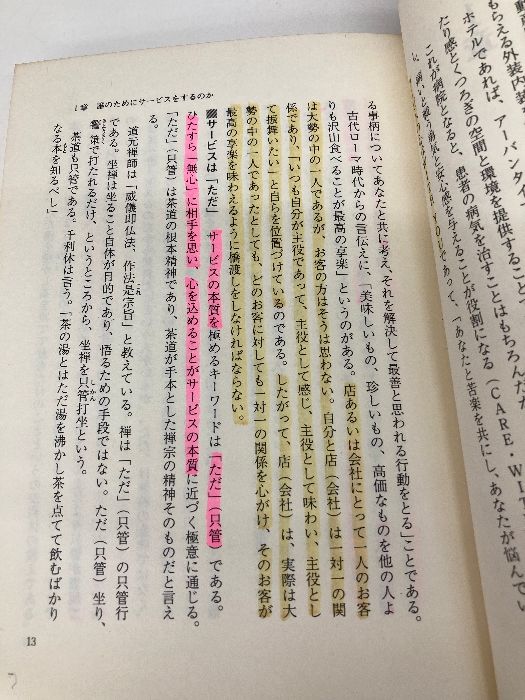 動
もらえる外装内装を
ホテルであれば、アーバンタイ
たり感とくつろぎの空間と環境を提供すること
これが病院となると、患者の病気を治すことはもちろんだ
に、病いと戦う勇気と安心感を与えることが役割になる（CARE・WIT
YOUであって、「あなたと苦楽を共にし、あなたが悩んで
1章 誰のためにサービスをするのか
る事柄についてあなたと共に考え、それを解決して最善と思われる行動をとる」ことである。
古代ローマ時代からの言伝えに、「美味しいもの、珍しいもの、高価なものを他の人よ
りも沢山食べることが最高の享楽」というのがある。店あるいは会社にとって一人のお客
は大勢の中の一人であるが、お客の方はそうは思わない。自分と店（会社）は一対一の関
係であり、「いつも自分が主役であって、主役として感じ、主役として味わい、主役とし
て振舞いたい」と自らを位置づけているのである。したがって、店（会社）は、実際は大
勢の中の一人であったとしても、どのお客に対しても一対一の関係を心がけ、そのお客が
最高の享楽を味わえるように橋渡しをしなければならない。
▨サービスは「ただ」 サービスの本質を極めるキーワードは「ただ」（只管）である。
ひたすら「無心」に相手を思い、心を込めることがサービスの本質に近づく極意に通じる。
「ただ」（只管）は茶道の根本精神であり、茶道が手本とした禅宗の精神そのものだと言え
る。
道元禅師は「威儀即仏法、作法是宗旨」と教えている。禅は「ただ」（只管）の只管行
である。坐禅は坐ること自体が目的であり、悟るための手段ではない。ただ（只管）坐り、
警策で打たれるだけ、というところから、坐禅を只管打坐という。
茶道も只管である。千利休は言う。「茶の湯とはただ湯を沸かし茶を点てて飲むばかり
なる本を知るべし」
13